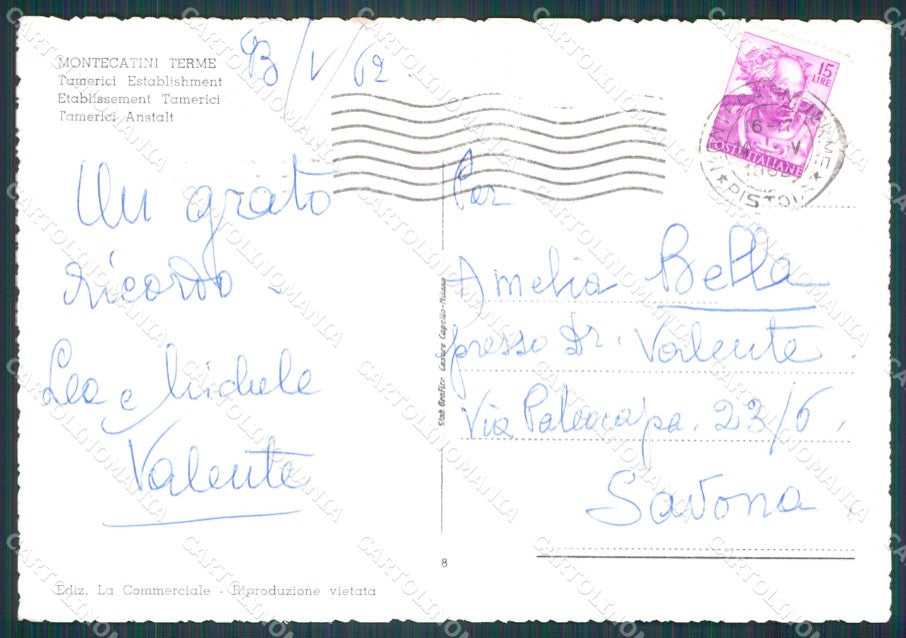 MONTECATINI TERME
Tamerici Establishment
Etablissement Tamerici
Tamerici Anstalt
/V/62
15
LIRE
POSTE ITALIANE
PISTOIA
Un grato
ricordo
Leo e Michele
Valente
Per
Amelia Bella
presso Dr. Valente
Via Paleocapa. 23/6.
Savona
Stab Grafico Cesare Capello-Milano
8
Ediz. La Commerciale - Riproduzione vietata
CARTOLINOMANIA